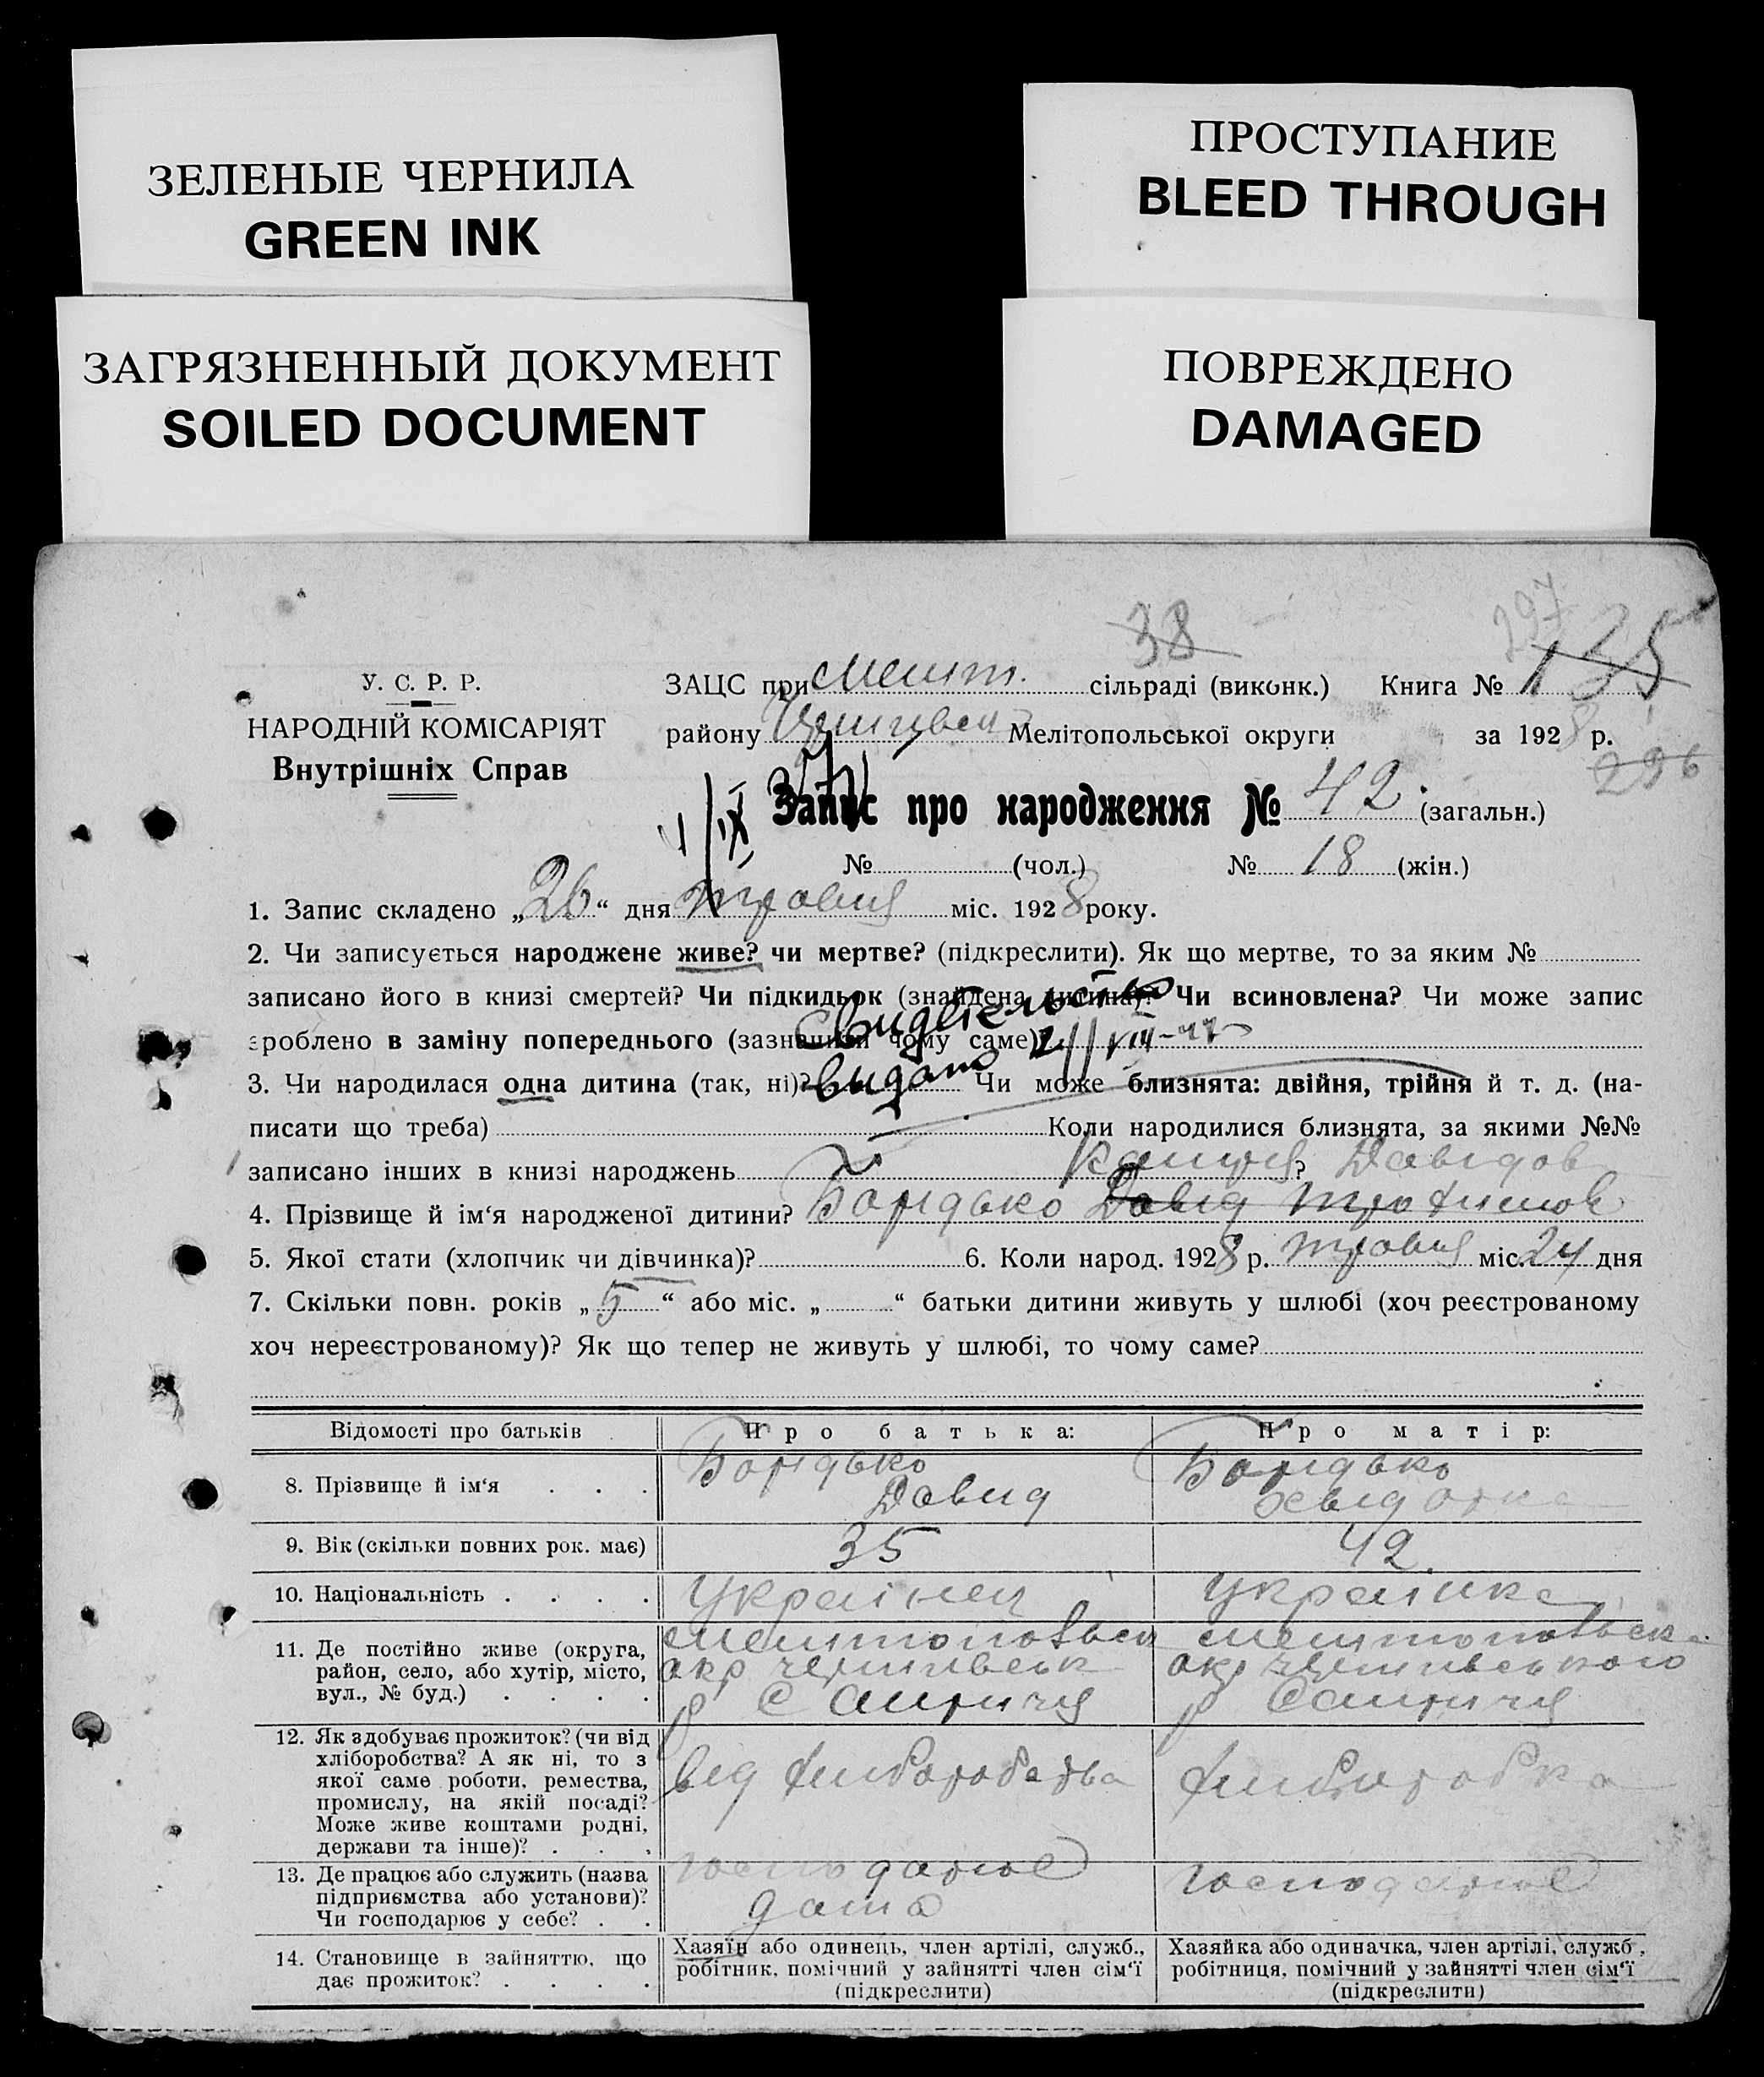 ЗЕЛЕНЫЕ ЧЕРНИЛА
GREEN INK
ПРОСТУПАНИЕ
BLEED THROUGH
ЗАГРЯЗНЕННЫЙ ДОКУМЕНТ
SOILED DOCUMENT
ПОВРЕЖДЕНО
DAMAGED
38
297
У. С. Р. Р.
НАРОДНІЙ КОМІСАРІЯТ
Внутрішніх Справ
ЗАЦС при сільраді (виконк.) Книга № 135
району Мелітопольської округи за 1928 р.
296
Запис про народження № 42 (загальн.)
№ (чол.) № 18 (жін.)
1. Запис складено „26“ дня травня міс. 1928 року.
2. Чи записується народжене живе? чи мертве? (підкреслити). Як що мертве, то за яким №
записано його в книзі смертей? Чи підкидьок (знайдена дитина)? Чи всиновлена? Чи може запис
зроблено в заміну попереднього (зазначити чому саме)
видано
3. Чи народилася одна дитина (так, ні)? Чи може близнята: двійня, трійня й т. д. (на-
писати що треба) Коли народилися близнята, за якими №№
записано інших в книзі народжень ? Давидов
4. Прізвище й ім‘я народженої дитини? Бондько Давид
5. Якої стати (хлопчик чи дівчинка)? 6. Коли народ. 1928 р. травня міс. 24 дня
7. Скільки повн. років „5“ або міс. „ “ батьки дитини живуть у шлюбі (хоч реєстрованому
хоч нереєстрованому)? Як що тепер не живуть у шлюбі, то чому саме?
Відомості про батьків Про батька: Про матір:
8. Прізвище й ім‘я Бондько Давид Бондько
9. Вік (скільки повних рок. має) 35 42
10. Національність Українец Українка
11. Де постійно живе (округа,
район, село, або хутір, місто,
вул., № буд.)
12. Як здобуває прожиток? (чи від
хліборобства? А як ні, то з
якої саме роботи, ремества,
промислу, на якій посаді?
Може живе коштами родні,
держави та інше)?
від хліборобства
хліборобка
13. Де працює або служить (назва
підприємства або установи)?
Чи господарює у себе?
господарює
дома
господарює
14. Становище в зайняттю, що
дає прожиток?
Хазяїн або одинець, член артілі, служб.,
робітник, помічний у зайнятті член сім‘ї
(підкреслити)
Хазяйка або одиначка, член артілі, служб.,
робітниця, помічний у зайнятті член сім‘ї
(підкреслити)